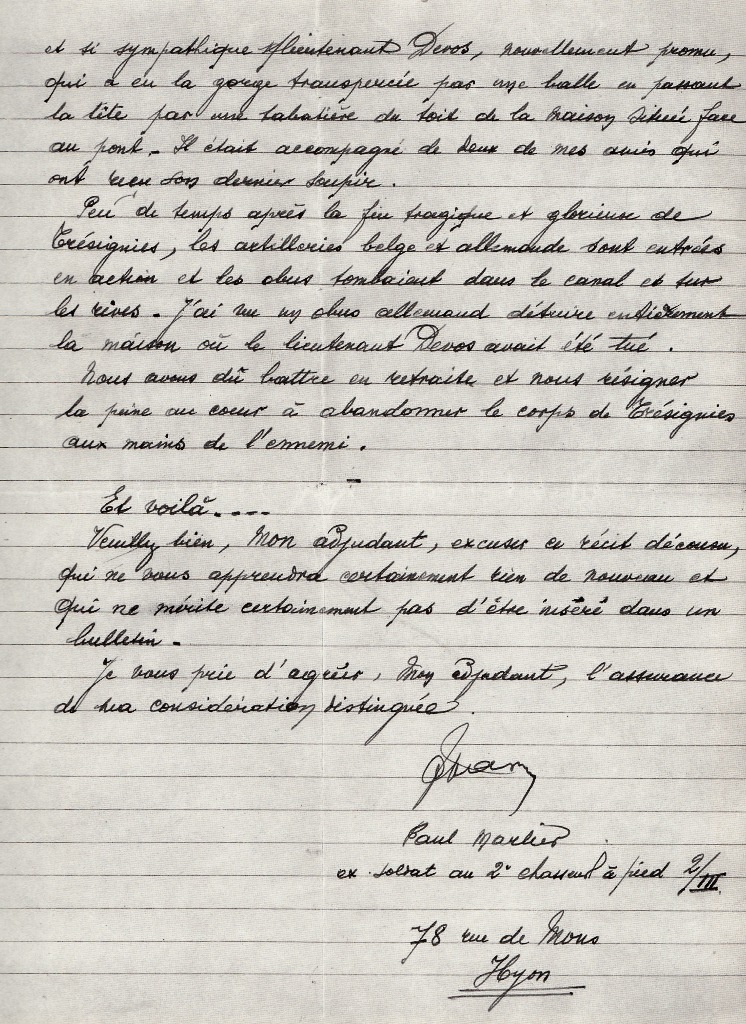 et si sympathique s/lieutenant Devos, nouvellement promu,
qui a eu la gorge transpercée par une balle en passant
la tête par une tabatière du toit de la maison située face
au pont. Il était accompagné de deux de mes amis qui
ont reçu son dernier soupir.
Peu de temps après la fin tragique et glorieuse de
Trésignies, les artilleries belge et allemande sont entrées
en action et les obus tombaient dans le canal et sur
les rives. J'ai vu un obus allemand détruire entièrement
la maison où le lieutenant Devos avait été tué.
Nous avons dû battre en retraite et nous résigner
la peine au coeur à abandonner le corps de Trésignies
aux mains de l'ennemi.
–
Et voilà....
Veuillez bien, Mon adjudant, excuser ce récit décousu,
qui ne vous apprendra certainement rien de nouveau et
qui ne mérite certainement pas d'être inséré dans un
bulletin.
Je vous prie d'agréer, Mon adjudant, l'assurance
de ma considération distinguée.
Paul Marlier
ex soldat au 2e chasseur à pied 2/III
78 rue de Mons
Hyon